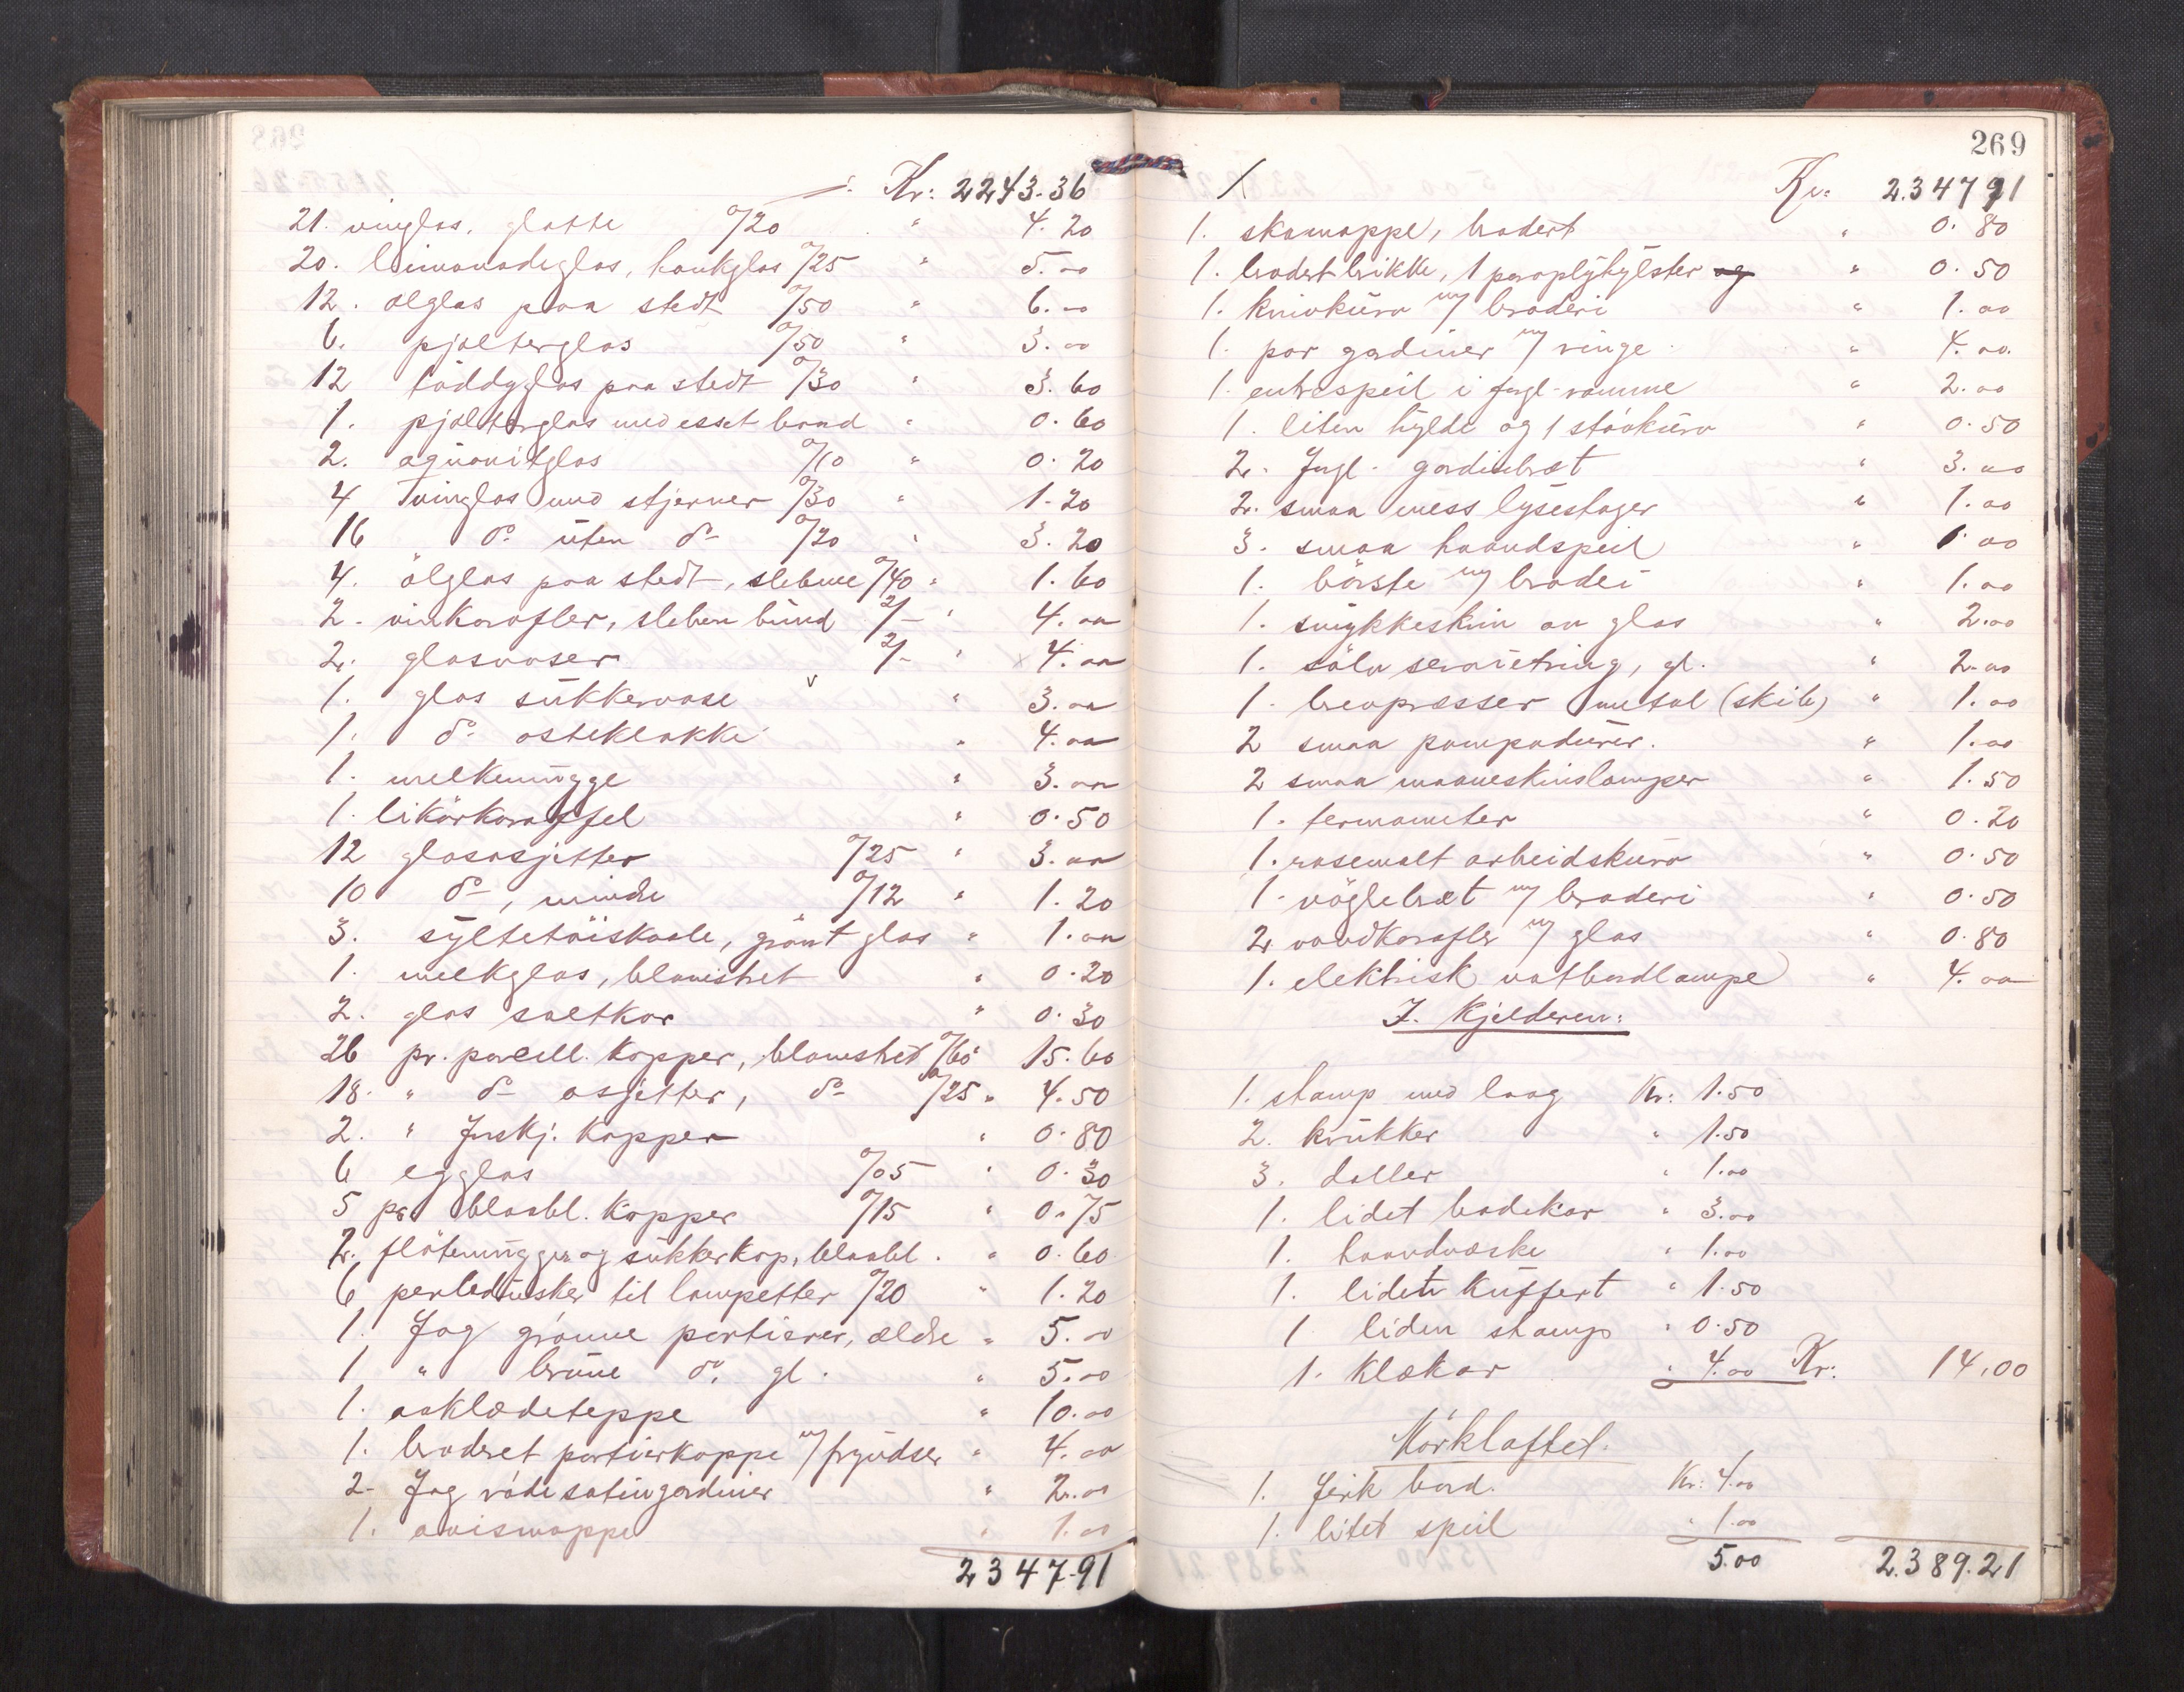 Kr: 2243.36
21. vinglas, glatte a/20 " 4.20
20. limonadeglas, hankglas a/25 " 5.00
12. ølglas paa stedt a/50 " 6.00
6. pjolterglas a/50 " 3.00
12 toddyglas paa stedt a/30 " 3.60
1. pjolterglas med esset band " 0.60
2. aquavitglas a/10 " 0.20
4 vinglas med stjerner a/30 " 1.20
16 do uten do a/20 " 3.20
4. ölglas paa stedt, slebne a/40 " 1.60
2. vinkarafler, sleben bund 2/- " 4.00
2. glasvaser 2/- " 4.00
1. glas sukkervase " 3.00
1. do osteklokke " 4.00
1. melkemugge " 3.00
1. likörkaraffel " 0.50
12 glasasjetter a/25 " 3.00
10 do, mindre a/12 " 1.20
3. syltetöiskaale, grönt glas " 1.00
1. melkglas, blomstret " 0.20
2. glas saltkar " 0.30
26 pr. porcell. kopper, blomstret a/60 15.60
18. " do asjetter, do a/25 " 4.50
2. " forskj. kopper " 0.80
6 egglas a/05 " 0.30
5 pr blaabl. kopper a/15 " 0.75
2. flötemugger og sukkerkop, blaabl. " 0.60
6 perledusker til lampetter a/20 " 1.20
1. fag grönne portierer, ældre " 5.00
1 " brune do gl. " 5.00
1. asklædeteppe " 10.00
1. broderet portierkappe m/ fryndser " 4.00
2. fag röde satingardiner " 2.00
1. avismappe " 1.00
2347.91
269
Kr: 2.347 91
1. skomappe, brodert " 0.80
1. brodert brikke, 1 paraplyhylster og " 0.50
1. knivkurv m/ broderi " 1.00
1. par gardiner m/ ringe " 4.00
1. entrespeil i fugl-ramme " 2.00
1. liten hylde og 1 stövkurv " 0.50
2. fugl. gardinbræt " 3.00
2. smaa mess lysestager " 1.00
3. smaa haandspeil " 1.00
1. börste m/ broderi " 1.00
1. smykkeskrin av glas " 2.00
1. sölv servietring, gl. " 2.00
1. brevpresser metal (skib) " 1.00
2 smaa pompadurer. " 1.00
2 smaa maaneskinslamper " 1.50
1. termometer " 0.20
1. rosemalt arbeidskurv " 0.50
1. nöglebræt m/ broderi " 0.50
2 vandkarafler m/ glas " 0.80
1. elektrisk natbordlampe " 4.00
I. Kjelderen:
1. stamp med laag Kr: 1.50
2. krukker " 1.50
3. daller " 1.00
1. lidet badekar " 3.00
1. haandvæske " 1.00
1. liden kuffert " 1.50
1 liden stamp " 0.50
1. klækar " 4.00 Kr: 14.00
Mörkloftet.
1. firk bord. Kr: 4.00
1. litet speil " 1.00
5.00 2.389.21